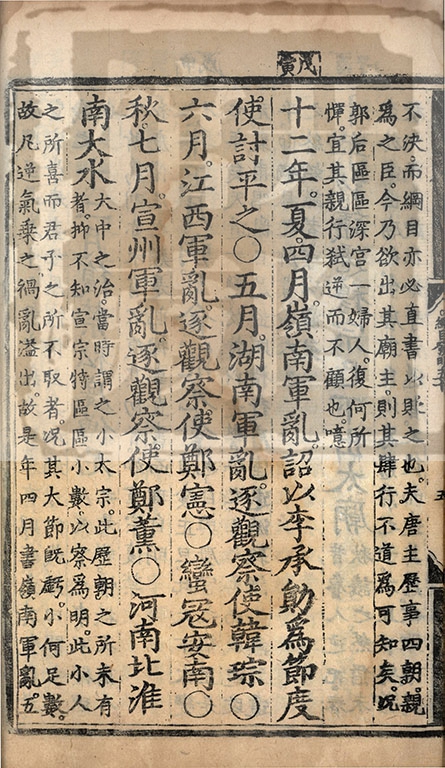 戊寅
不決而綱目亦必直書以貶之也夫唐主歷事四朝親
爲之臣今乃欲出其廟主則其肆行不道爲可知矣况
郭后區區深宮一婦人復何所
憚宜其親行弑逆而不顧也噫
十二年夏四月嶺南軍亂詔以李承勛爲節度
使討平之○五月湖南軍亂逐觀察使韓琮○
六月江西軍亂逐觀察使鄭憲○蠻寇安南○
秋七月宣州軍亂逐觀察使鄭薰○河南北淮
南大水大中之治當時謂之小太宗此歷朝之所未有
者抑不知宣宗特區區小數以察爲明此小人
之所喜而君子之所不取者况其大節旣虧小何足數
故凡逆氣乘之禍亂溢出故是年四月書嶺南軍亂五